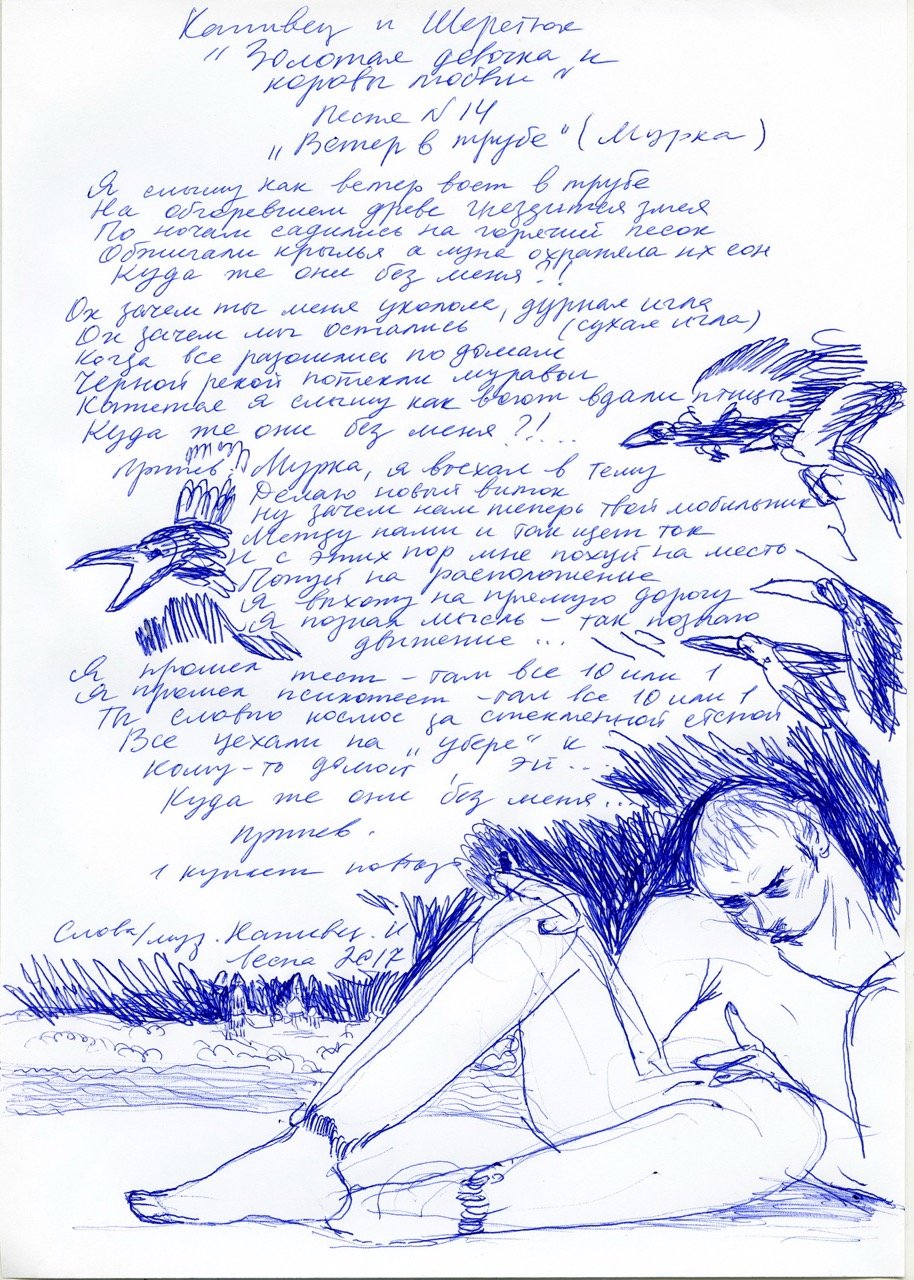 Кативец и Шеретюк
"Золотая девочка и
коровы любви"
Песня N 14
„Ветер в трубе" (Мурка)
Я слышу как ветер воет в трубе
На обгоревшем древе гнездится змея
По ночам садились на горячий песок
Обжигали крылья а луна охраняла их сон
Куда же они без меня?!!
Ох зачем ты меня уколола, дурная игла
Ох зачем мы остались (сухая игла)
Когда все разошлись по домам
Черной рекой потекли муравьи
Катетая я слышу как воют вдали птицы
Куда же они без меня?!...
припев: Мурка, я въехал в тему
Делаю новый виток
ну зачем нам теперь твой мобильник
Между нами и так идет ток
И с этих пор мне похуй на месть
Похуй на расположение
Я выхожу на прямую дорогу
Я познал мысль – так познаю
движение...
Я прошел тест – там все 10 или 1
Я прошел психотест – там все 10 или 1
Ты словно космос за стеклянной стеной
Все уехали на „убере" к
кому-то домой, эй...
Куда же они без меня...
припев.
1 куплет повтор
Слова/муз. Кативец. И
Весна 2017